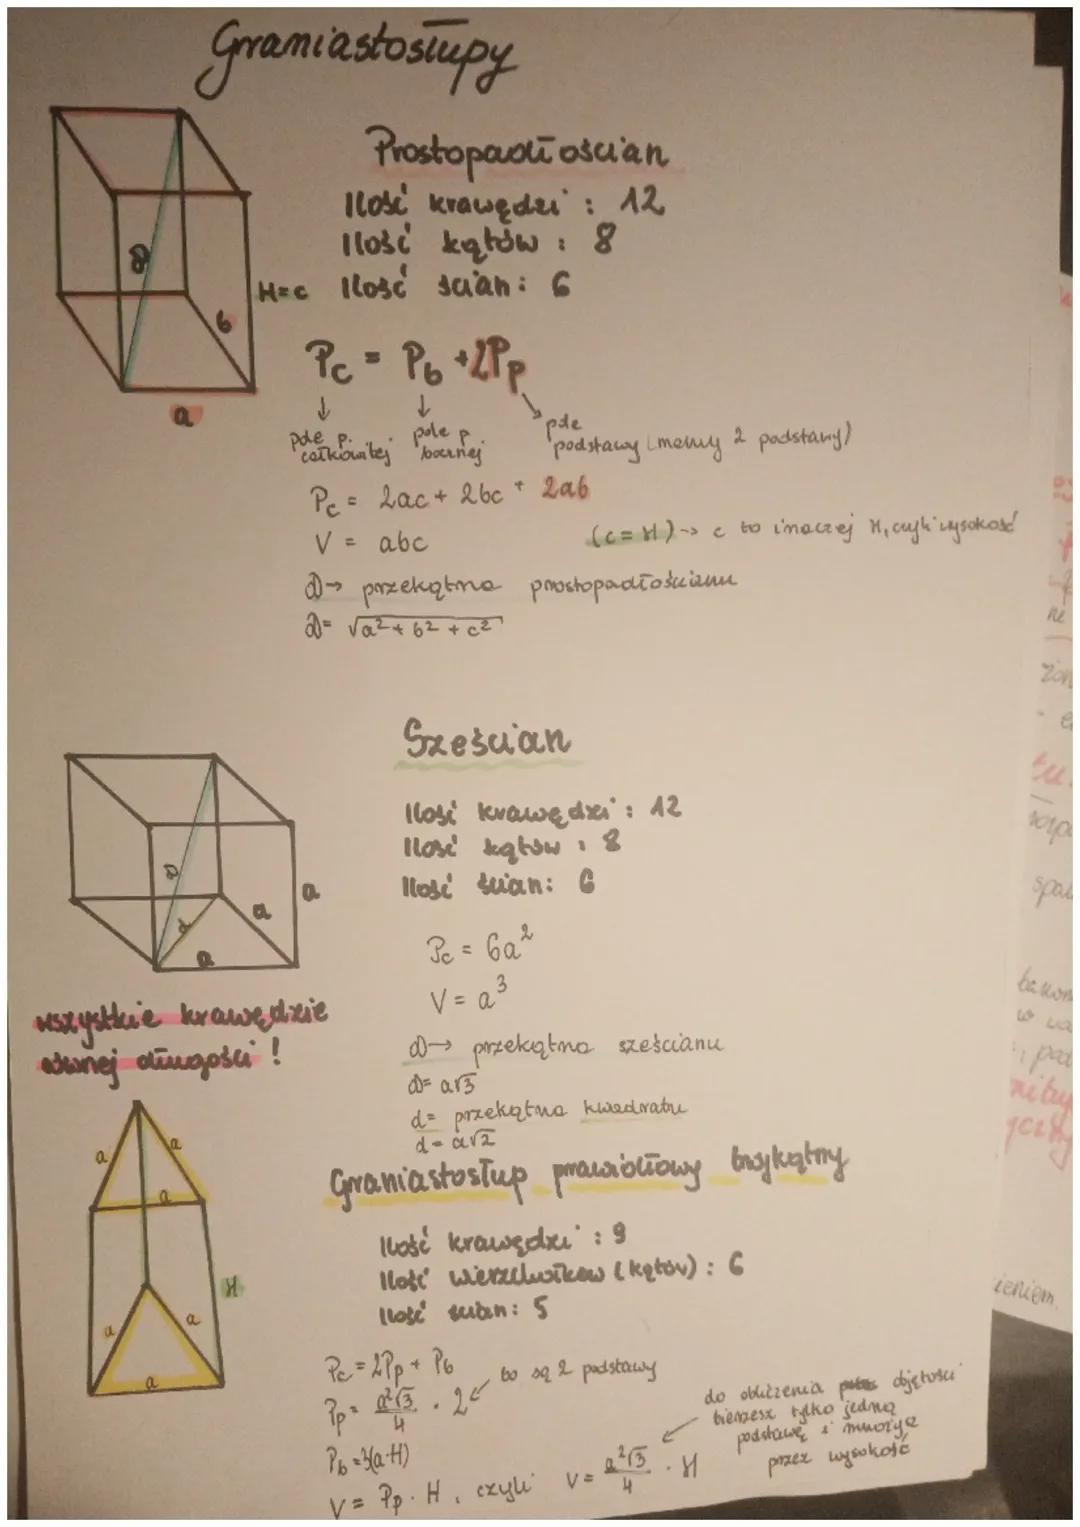 Graniastosłupy
Prostopadłościan
Ilość krawędzi : 12
Ilość kątów : 8
Ilość ścian : 6
D
H=c
b
a
Pc = Pb + 2Pp
pole p. całkowitej
pole p. bocznej
pole podstawy (mamy 2 podstawy)
Pc = 2ac + 2bc + 2ab
V = abc
(c = H) → c to inaczej H, czyli wysokość
D → przekątna prostopadłościanu
D = √a² + b² + c²
Sześcian
Ilość krawędzi : 12
Ilość kątów : 8
Ilość ścian : 6
D
d
a
a
a
Pc = 6a²
V = a³
wszystkie krawędzie
równej długości !
D → przekątna sześcianu
D = a√3
d = przekątna kwadratu
d = a√2
Graniastosłup prawidłowy trójkątny
Ilość krawędzi : 9
Ilość wierzchołków (kątów) : 6
Ilość ścian : 5
a
a
a
H
a
a
a
Pc = 2Pp + Pb
Pp = a²√3/4 · 2 ← bo są 2 podstawy
Pb = 3(a·H)
V = Pp · H, czyli V = a²√3/4 · H
do obliczenia objętości
bierzesz tylko jedną
podstawę i mnożysz
przez wysokość
ieniem.